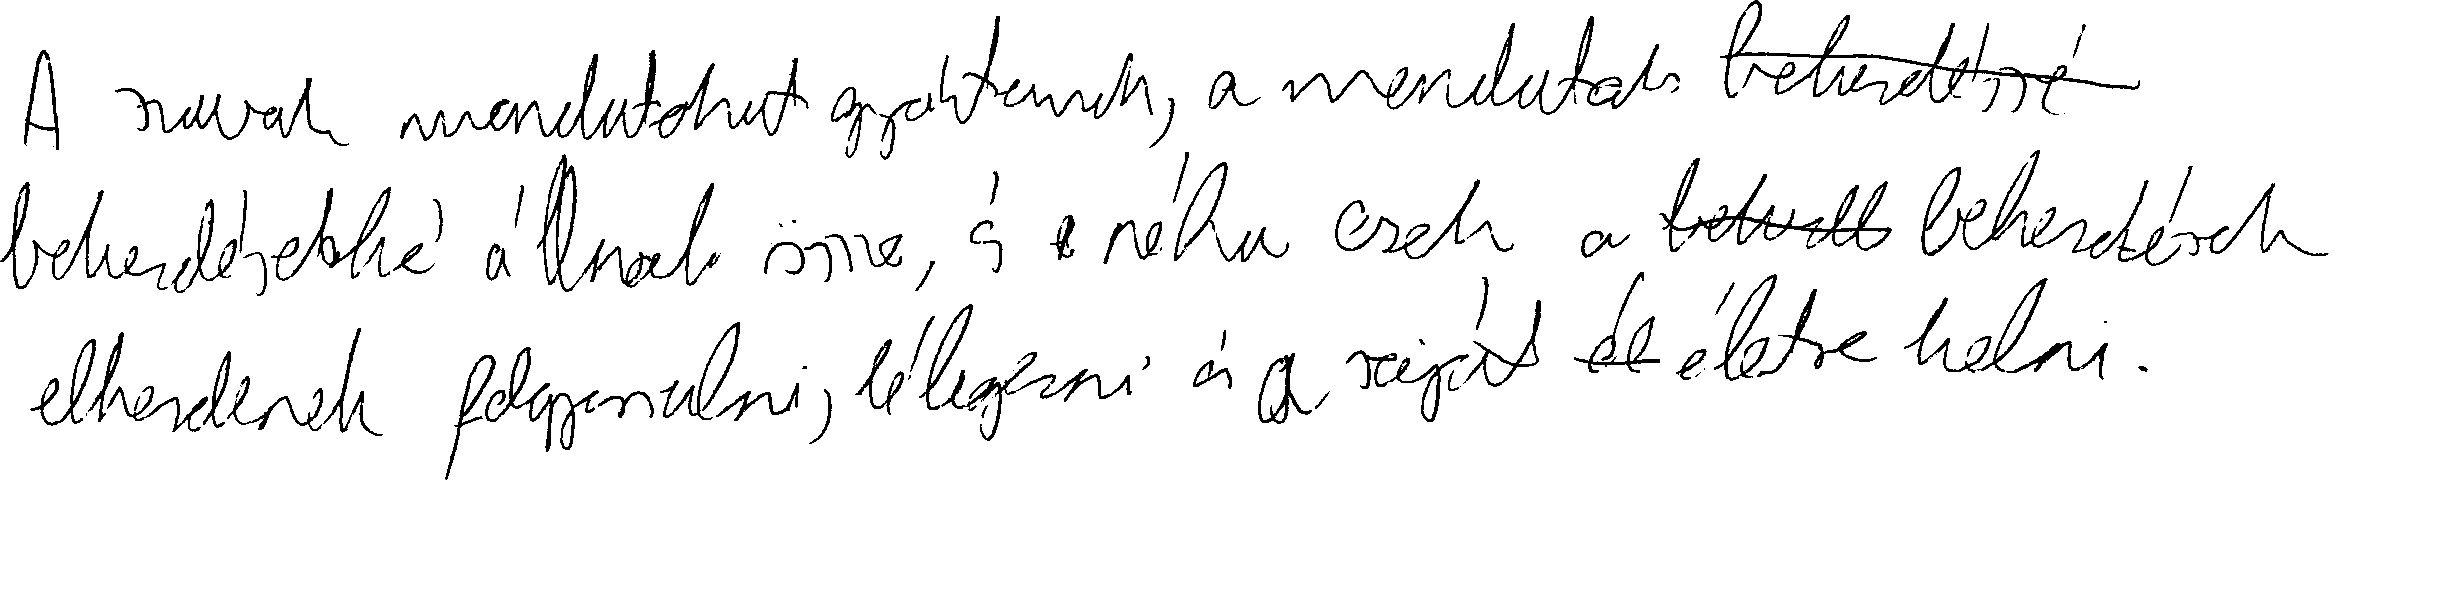 A szavak mondatokat gyártanak, a mondatok bekezdéssé
bekezdésekké állnak össze, és néha ezek a bekezdések
elkezdenek felgyorsulni, lélegezni és a saját él életre kelni.